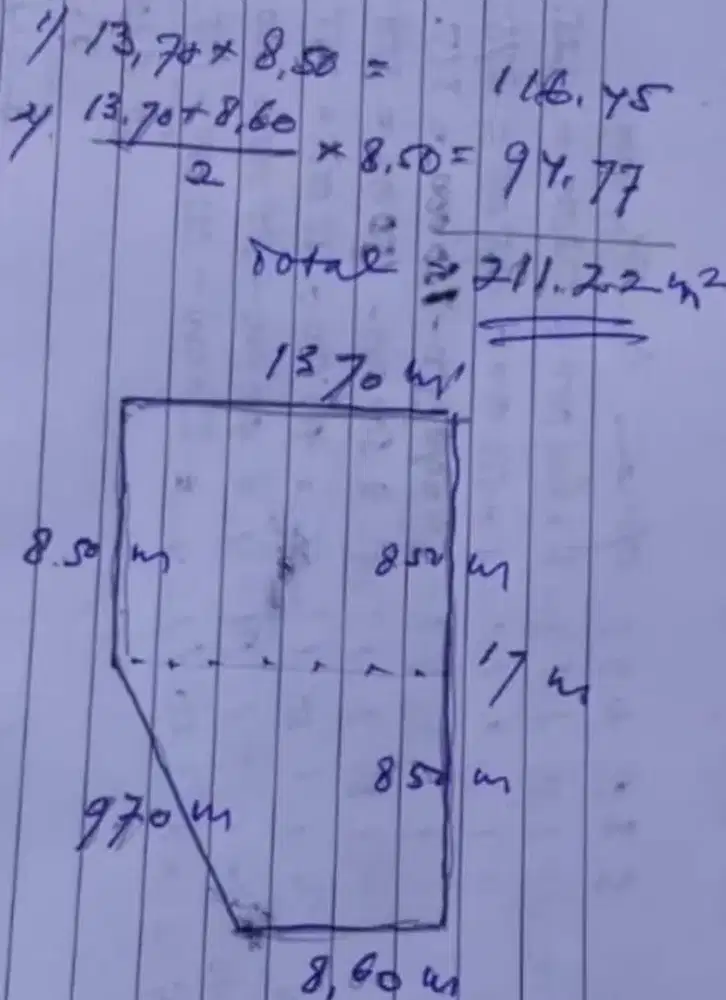 1) 13,70 × 8,50 = 116.45
2) 13,70 + 8,60
2
× 8,50 = 94.77
Total = 211.22 m²
13 70 m
8.50 m
8 50 m
17 m
8 50 m
9 70 m
8,60 m